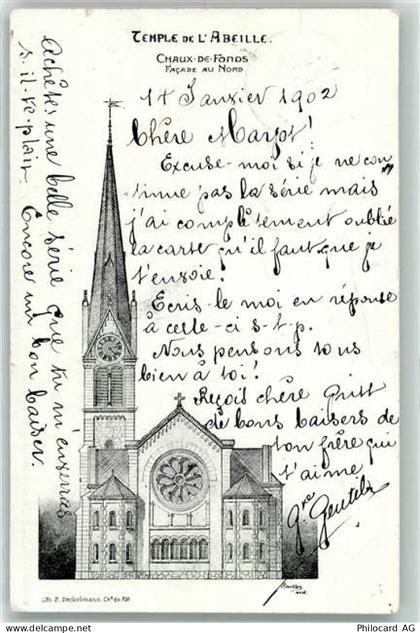 TEMPLE DE L'ABEILLE.
CHAUX-DE-FONDS
FAÇADE AU NORD
14 Janvier 1902
Chère Margot!
Excuse-moi si je ne con
tinue pas la série mais
j'ai complètement oublié
la carte qu'il faut que je
t'envoie!
Ecris-le moi en réponse
à celle-ci s-t-p.
Nous pensons tous
bien à toi!
Reçois chère
de bons baisers de
ton frère qui
t'aime
Achètes une belle série que tu m'enverras
s.-il-te-plait.
Encore un bon baiser.
Lith. E. Deckelmann. Chx de Fds
© Philocard AG
www.philocard.com